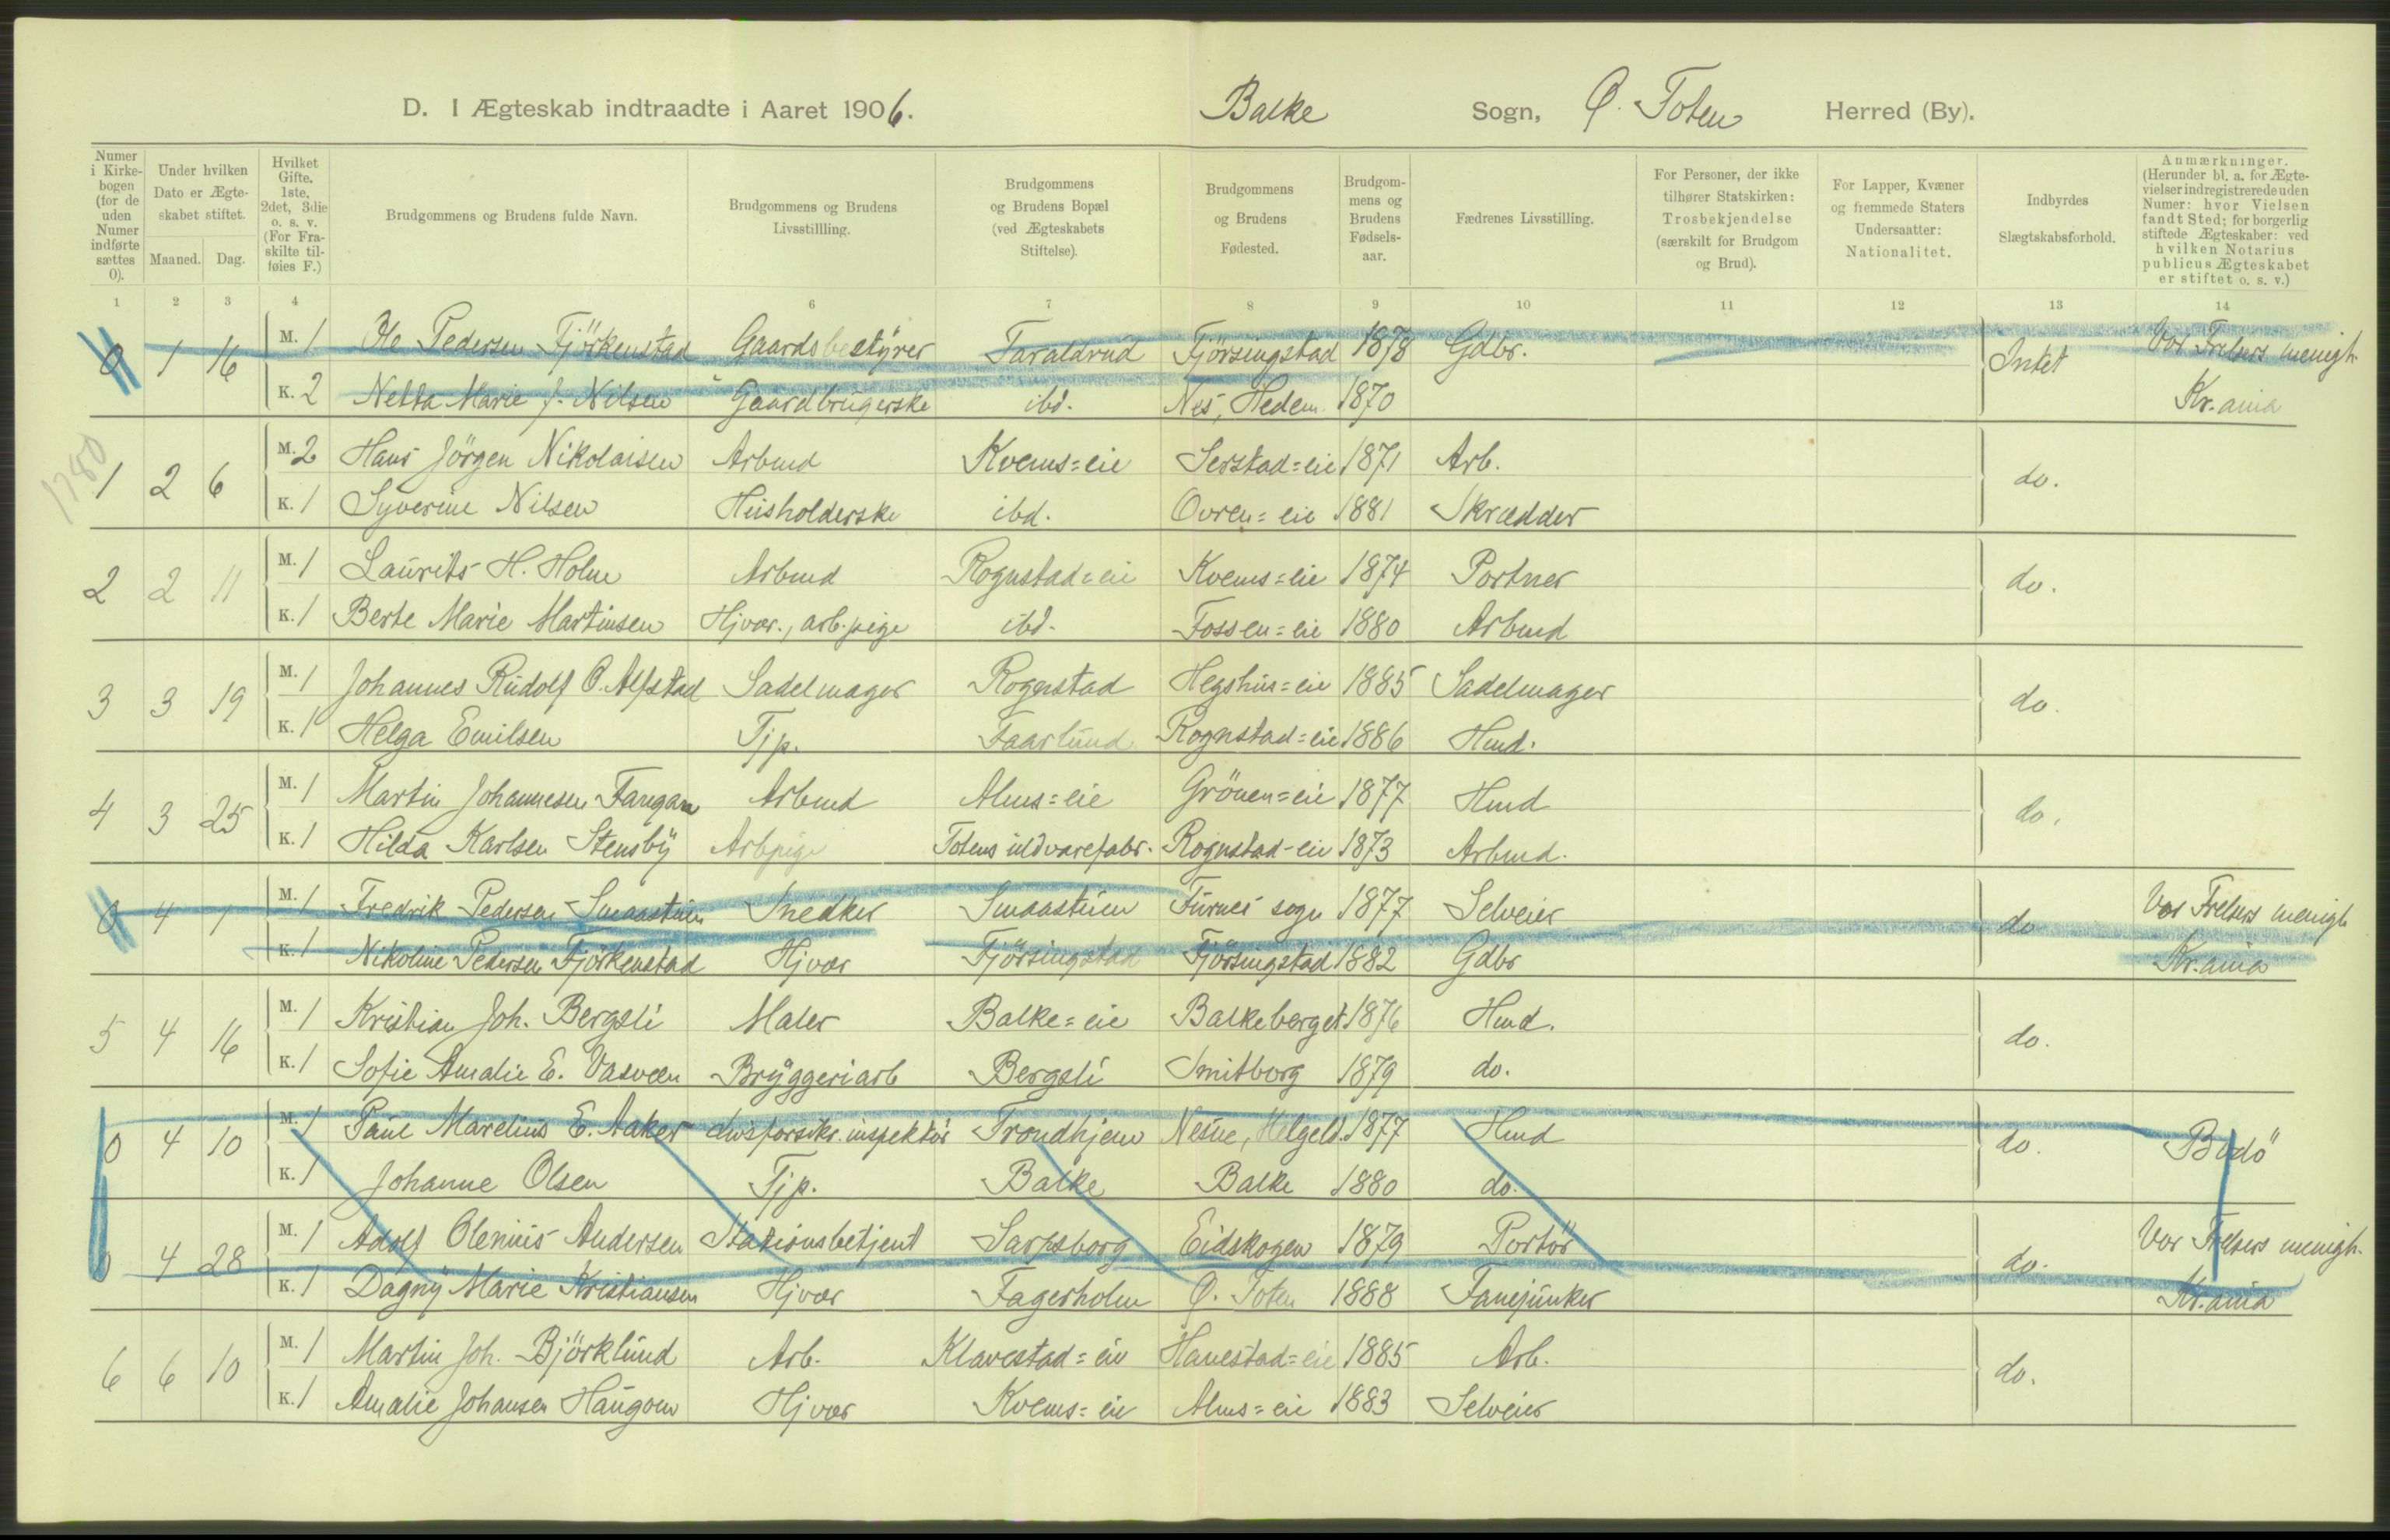 D. I Ægteskab indtraadte i Aaret 1906. Balke Sogn, Ø. Toten Herred (By).
Numer i Kirke-bogen (for de uden Numer indførte sættes 0). Under hvilken Dato er Ægte-skabet stiftet. Maaned. Dag. Hvilket Gifte. 1ste, 2det, 3die o. s. v. (For Fra-skilte til-føies F.) Brudgommens og Brudens fulde Navn. Brudgommens og Brudens Livsstillling. Brudgommens og Brudens Bopæl (ved Ægteskabets Stiftelse). Brudgommens og Brudens Fødested. Brudgom-mens og Brudens Fødsels-aar. Fædrenes Livsstilling. For Personer, der ikke tilhører Statskirken: Trosbekjendelse (særskilt for Brudgom og Brud). For Lapper, Kvæner og fremmede Staters Undersaatter: Nationalitet. Indbyrdes Slægtskabsforhold. Anmærkninger. (Herunder bl. a. for Ægte-vielser indregistrerede uden Numer: hvor Vielsen fandt Sted; for borgerlig stiftede Ægteskaber: ved hvilken Notarius publicus Ægteskabet er stiftet o. s. v.)
1 2 3 4 6 7 8 9 10 11 12 13 14
0 1 16 M. 1 Ole Pedersen Fjörkenstad Gaardsbestyrer Taraldrud Fjörsingstad 1878 Gdbr. Intet Vor Frelsers menigh.
K. 2 Netta Marie J. Nilsen Gaardbrugerske ibd. Nes, Hedem. 1870 Kr.ania
1780
1 2 6 M. 2 Hans Jörgen Nikolaisen Arbmd Kvems=eie Serstad=eie 1871 Arb. do.
K. 1 Syverine Nilsen Husholderske ibd. Ovren=eie 1881 Skrædder
2 2 11 M. 1 Laurits H. Holm Arbmd Rognstad=eie Kvems=eie 1874 Portner do.
K. 1 Berte Marie Martinsen Hjvær., arb.pige ibd. Fossen=eie 1880 Arbmd
3 3 19 M. 1 Johannes Rudolf O. Alfstad Sadelmager Rognstad Hegshus=eie 1885 Sadelmager do.
K. 1 Helga Emilsen Tjp. Faarlund Rognstad=eie 1886 Hmd.
4 3 25 M. 1 Martin Johannesen Fangan Arbmd Alms=eie Grönen=eie 1877 Hmd do.
K. 1 Hilda Karlsen Stensby Arbpige Totens uldvarefabr. Rognstad-eie 1873 Arbmd.
0 4 1 M. 1 Fredrik Pedersen Smaastuen Snedker Smaastuen Furnes sogn 1877 Selveier do Vor Frelsers menigh
K. 1 Nikoline Pedersen Fjörkenstad Hjvær Fjörsingstad Fjörsingstad 1882 Gdbr Kr.ania
5 4 16 M. 1 Kristian Joh. Bergsli Maler Balke=eie Balkeberget 1876 Hmd. do.
K. 1 Sofie Amalie E. Vasveen Bryggeriarb Bergsli Smitborg 1879 do.
0 4 10 M. 1 Paul Marelius E. Aaker livsforsikr. inspektör Trondhjem Nesne, Helgeld. 1877 Hmd do. Bodö
K. 1 Johanne Olsen Tjp. Balke Balke 1880 do.
0 4 28 M. 1 Adolf Olenius Andersen Stationsbetjent Sarpsborg Eidskogen 1879 Portör do. Vor Frelsers menigh.
K. 1 Dagny Marie Kristiansen Hjvær Fagerholm Ø. Toten 1888 Fanejunker Kr.ania
6 6 10 M. 1 Martin Joh. Björklund Arb. Klavestad=eie Hanestad=eie 1885 Arb. do.
K. 1 Amalie Johansen Haugom Hjvær Kvems=eie Alms=eie 1883 Selveier